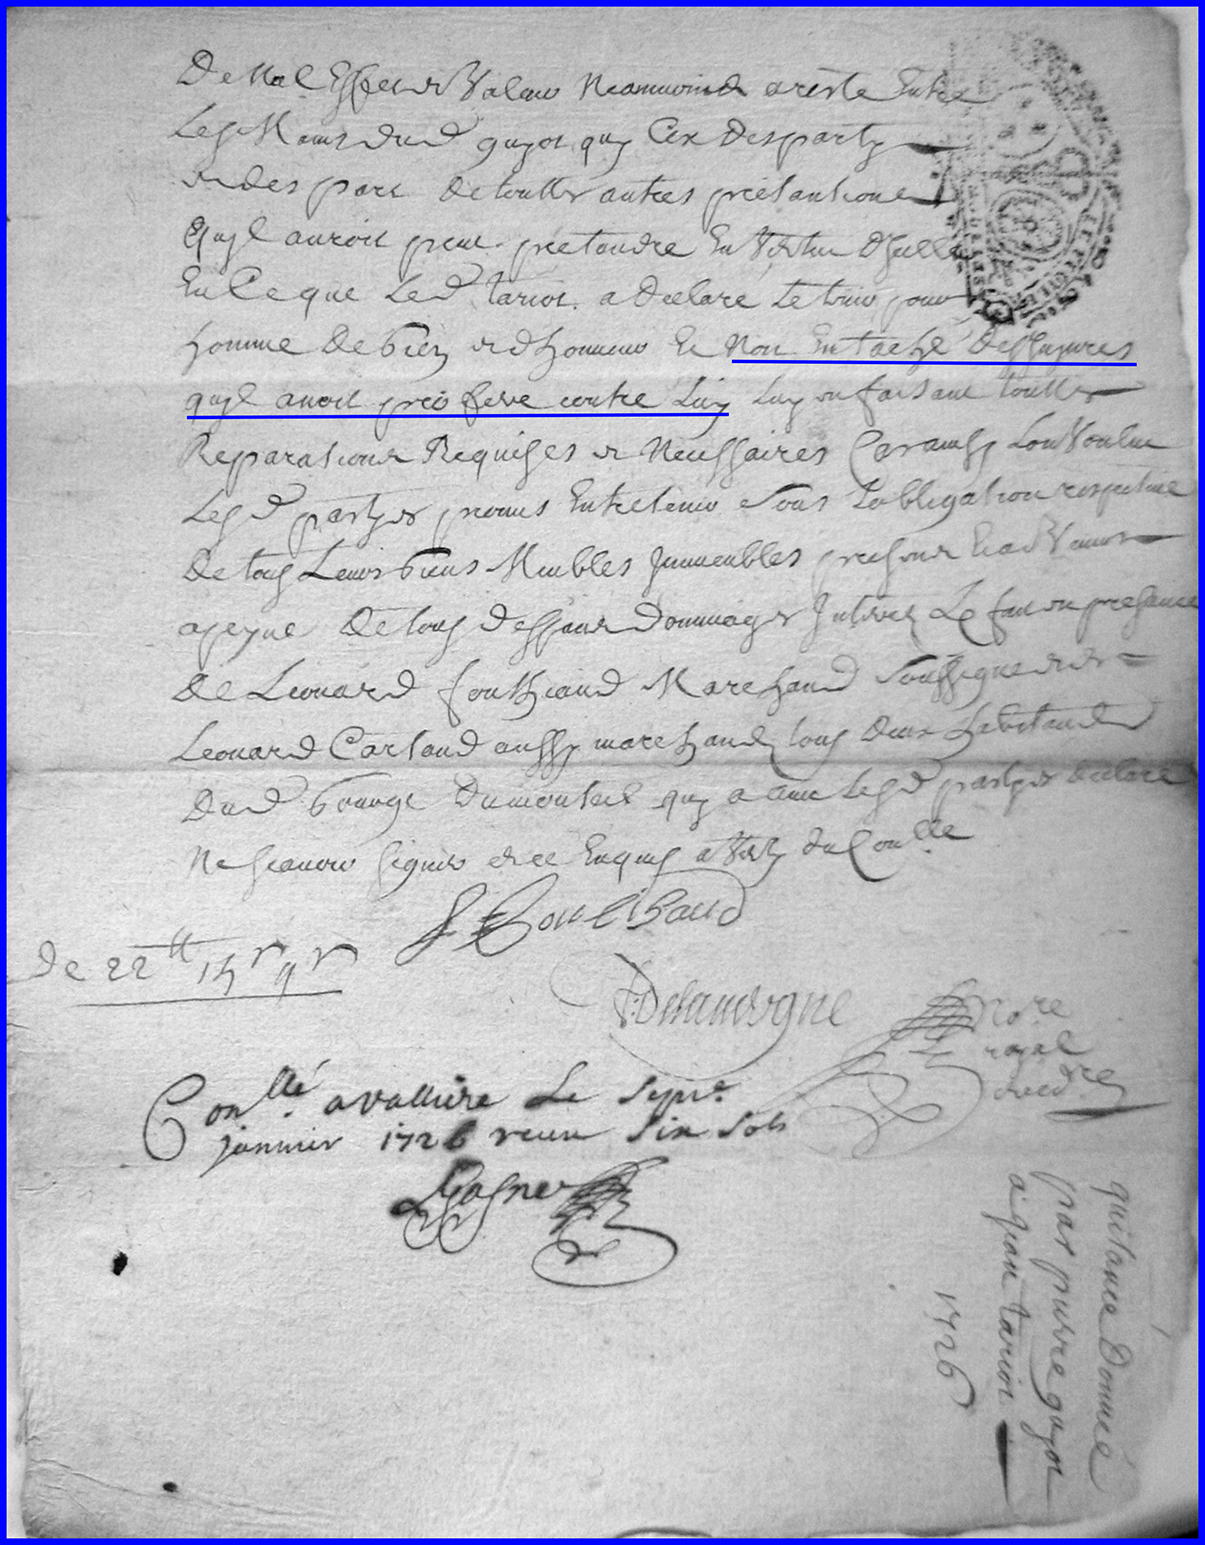 De Nul Effect et Valeur Neammoinds areste Entre
Les Mains dud guyot quy C'ex desparty
et des part de touttes autres prétantions
Quyl auroit peut pretandre En Vertu d'Jcelle
En Ce que Led tariot a declaré Le tenir pour
homme de bien et d'honneur Et Non Entaché des Jnjures
quyl avoit proferé contre Luy Luy en faisant touttes
Reparations Requises et Necessaires Car ainsy Lont Voulu
Lesd partyes promis Entretenir Sous Lobligation respective
De tous Leurs biens Meubles Jmmeubles presens Et advenir
apeyne De tous despans Dommages Jnterez Le fait en presance
de Léonard Soussigne et de
Leonard Cartaud aussy marchands tous deux habitands
Dud bourge Dumonteil quy a avec Lesd partyes declaré
Ne Scavoir Signer de ce Enquis
de 22tt
Delauvergne
No.re
royal
Conllé a valliere Le Sept.e
janvier 1726 receu Six Sols
quitance Donneé
par pierre guyot
a jean tariot
1726